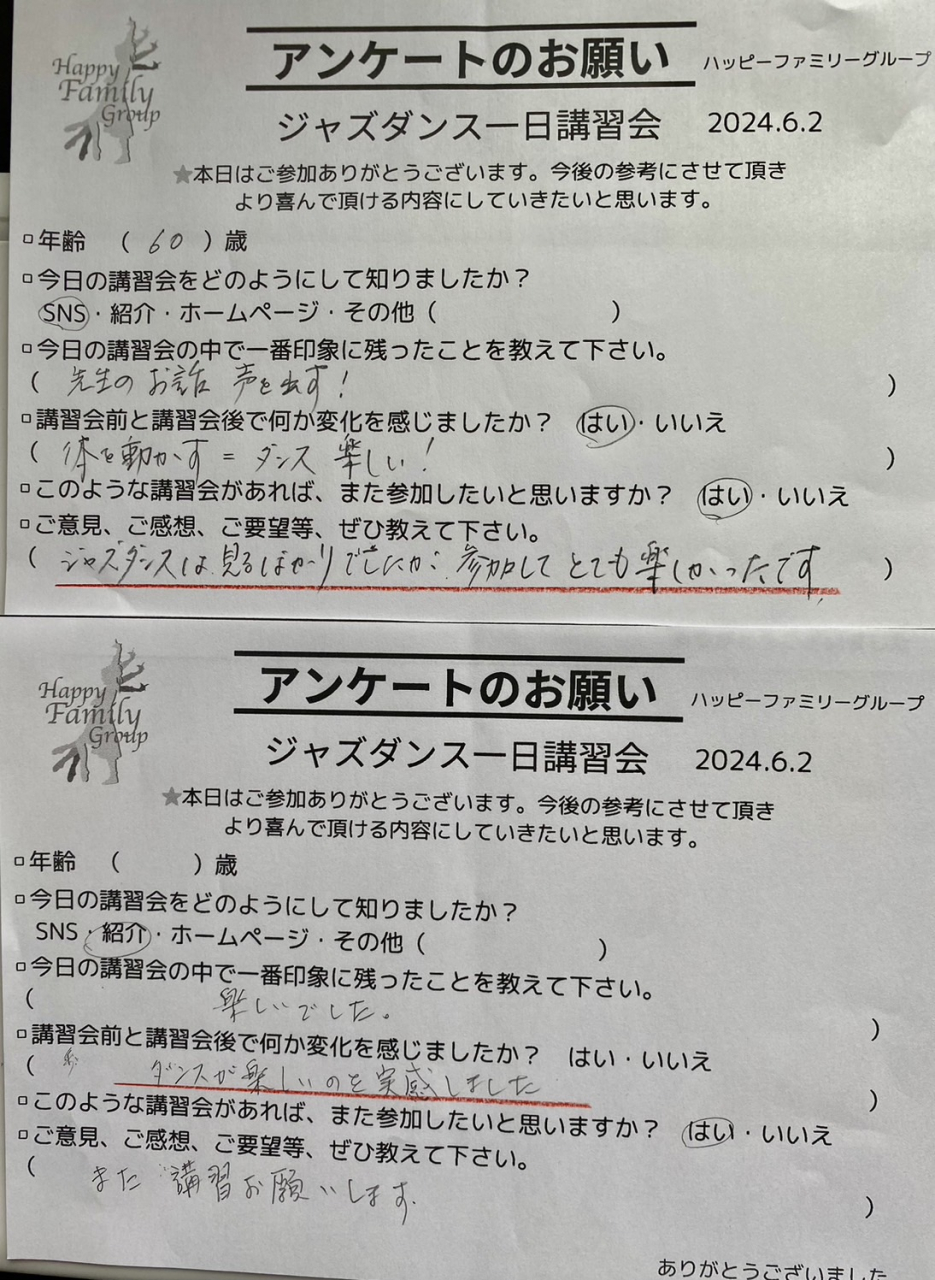 Happy
Family
Group
アンケートのお願い
ハッピーファミリーグループ
ジャズダンス一日講習会 2024.6.2
★本日はご参加ありがとうございます。今後の参考にさせて頂き
より喜んで頂ける内容にしていきたいと思います。
▫年齢 (60)歳
▫今日の講習会をどのようにして知りましたか？
SNS・紹介・ホームページ・その他（ ）
▫今日の講習会の中で一番印象に残ったことを教えて下さい。
（先生のお話 声を出す！）
▫講習会前と講習会後で何か変化を感じましたか？ はい・いいえ
（体を動かす＝ダンス 楽しい！）
▫このような講習会があれば、また参加したいと思いますか？ はい・いいえ
▫ご意見、ご感想、ご要望等、ぜひ教えて下さい。
（ジャズダンスは見るばかりでしたが 参加してとても楽しかったです）
Happy
Family
Group
アンケートのお願い
ハッピーファミリーグループ
ジャズダンス一日講習会 2024.6.2
★本日はご参加ありがとうございます。今後の参考にさせて頂き
より喜んで頂ける内容にしていきたいと思います。
▫年齢 （ ）歳
▫今日の講習会をどのようにして知りましたか？
SNS・紹介・ホームページ・その他（ ）
▫今日の講習会の中で一番印象に残ったことを教えて下さい。
（楽しいでした。）
▫講習会前と講習会後で何か変化を感じましたか？ はい・いいえ
（ダンスが楽しいのを実感しました）
▫このような講習会があれば、また参加したいと思いますか？ はい・いいえ
▫ご意見、ご感想、ご要望等、ぜひ教えて下さい。
（また講習お願いします。）
ありがとうございました